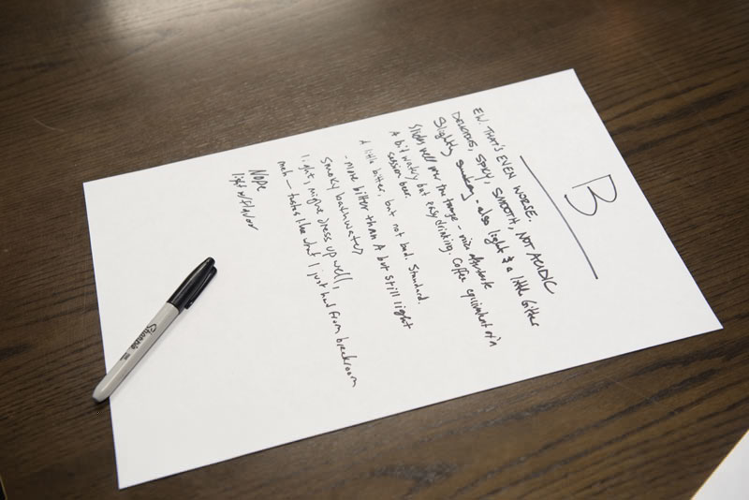 B
EW. THAT'S EVEN WORSE.
DELICIOUS, SPICY, SMOOTH, NOT ACIDIC
Slightly smokey - also light & a little bitter
Slides well over the tongue - nice aftertaste
A bit watery but easy drinking. Coffee equivalent of a
session beer.
A little bitter, but not bad. Standard.
- more bitter than A but still light
Smoky backwater
light, might dress up well,
meh - tastes like what I just had from breakroom
Nope
light w/flavor
Sharpie